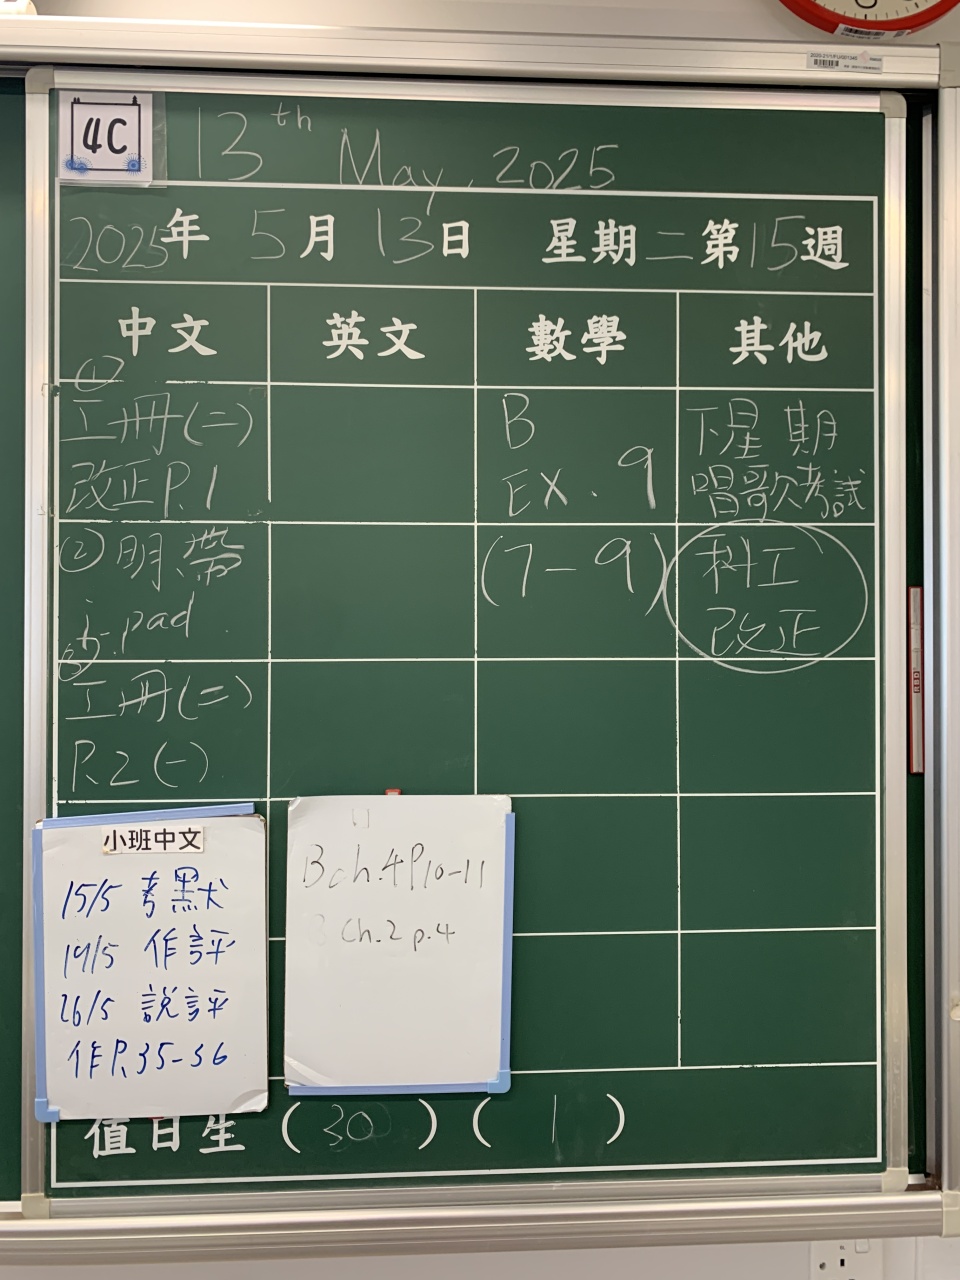 4C
13th May, 2025
2025年 5月 13日 星期二第15週
中文
英文
數學
其他
①
工冊(二)
改正P.1
② 明帶
i-pad
③
工冊(二)
P.2(一)
B
EX. 9
(7-9)
下星期
唱歌考試
科工
改正
小班中文
15/5 考默
19/5 作評
26/5 說評
作P.35-36
B ch.4 P10-11
Ch.2 p.4
值日生 (30) (1)